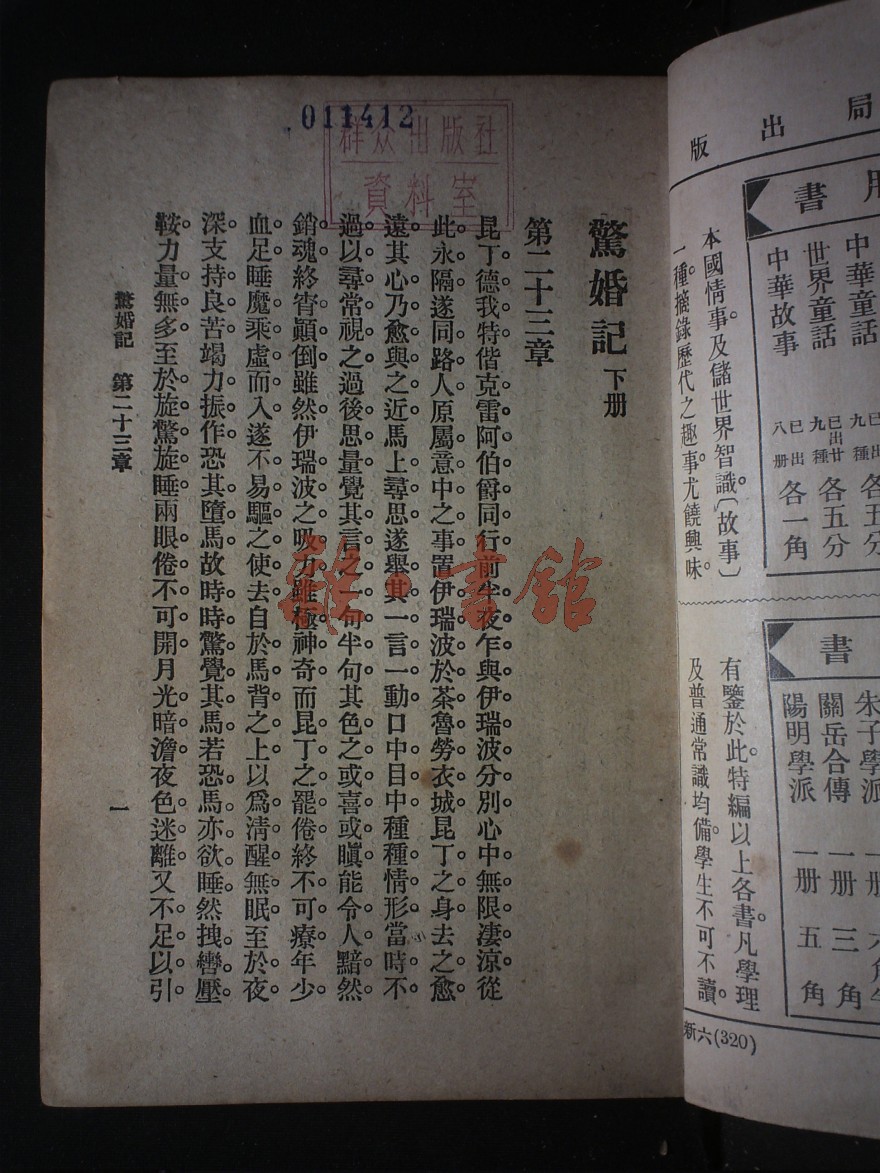 局出版
書
中華童話
已出
九種
各五分
世界童話
已出廿
九種
各五分
中華故事
已出
八册
各一角
本國情事。及儲世界智識。〔故事〕
一種。摘錄歷代之趣事。尤饒興味。
書
朱子學派
一册
關岳合傳
一册
三角
陽明學派
一册
五角
有鑒於此。特編以上各書。凡學理
及普通常識均備。學生不可不讀。
新六(320)
011412
群众出版社
資料室
驚婚記 下册
第二十三章
昆丁德我特偕克雷阿伯爵同行。前半夜乍與伊瑞波分別。心中無限凄涼。從
此永隔。遂同路人。原屬意中之事。置伊瑞波於茶魯勞衣城。昆丁之身去之愈
遠。其心乃愈與之近。馬上尋思。遂舉其一言一動。口中目中。種種情形。當時不
過以尋常視之。過後思量。覺其言之一句半句。其色之或喜或瞋。能令人黯然
銷魂。終宵顚倒。雖然。伊瑞波之吸力。雖極神奇。而昆丁之罷倦。終不可療。年少
血足。睡魔乘虛而入。遂不易驅之使去。自於馬背之上。以爲清醒無眠。至於夜
深。支持良苦。竭力振作。恐其墮馬。故時時驚覺。其馬若恐。馬亦欲睡。然拽轡壓
鞍。力量無多。至於旋驚旋睡。兩眼倦不可開。月光暗澹。夜色迷離。又不足以引
驚婚記 第二十三章
一
雜·書館